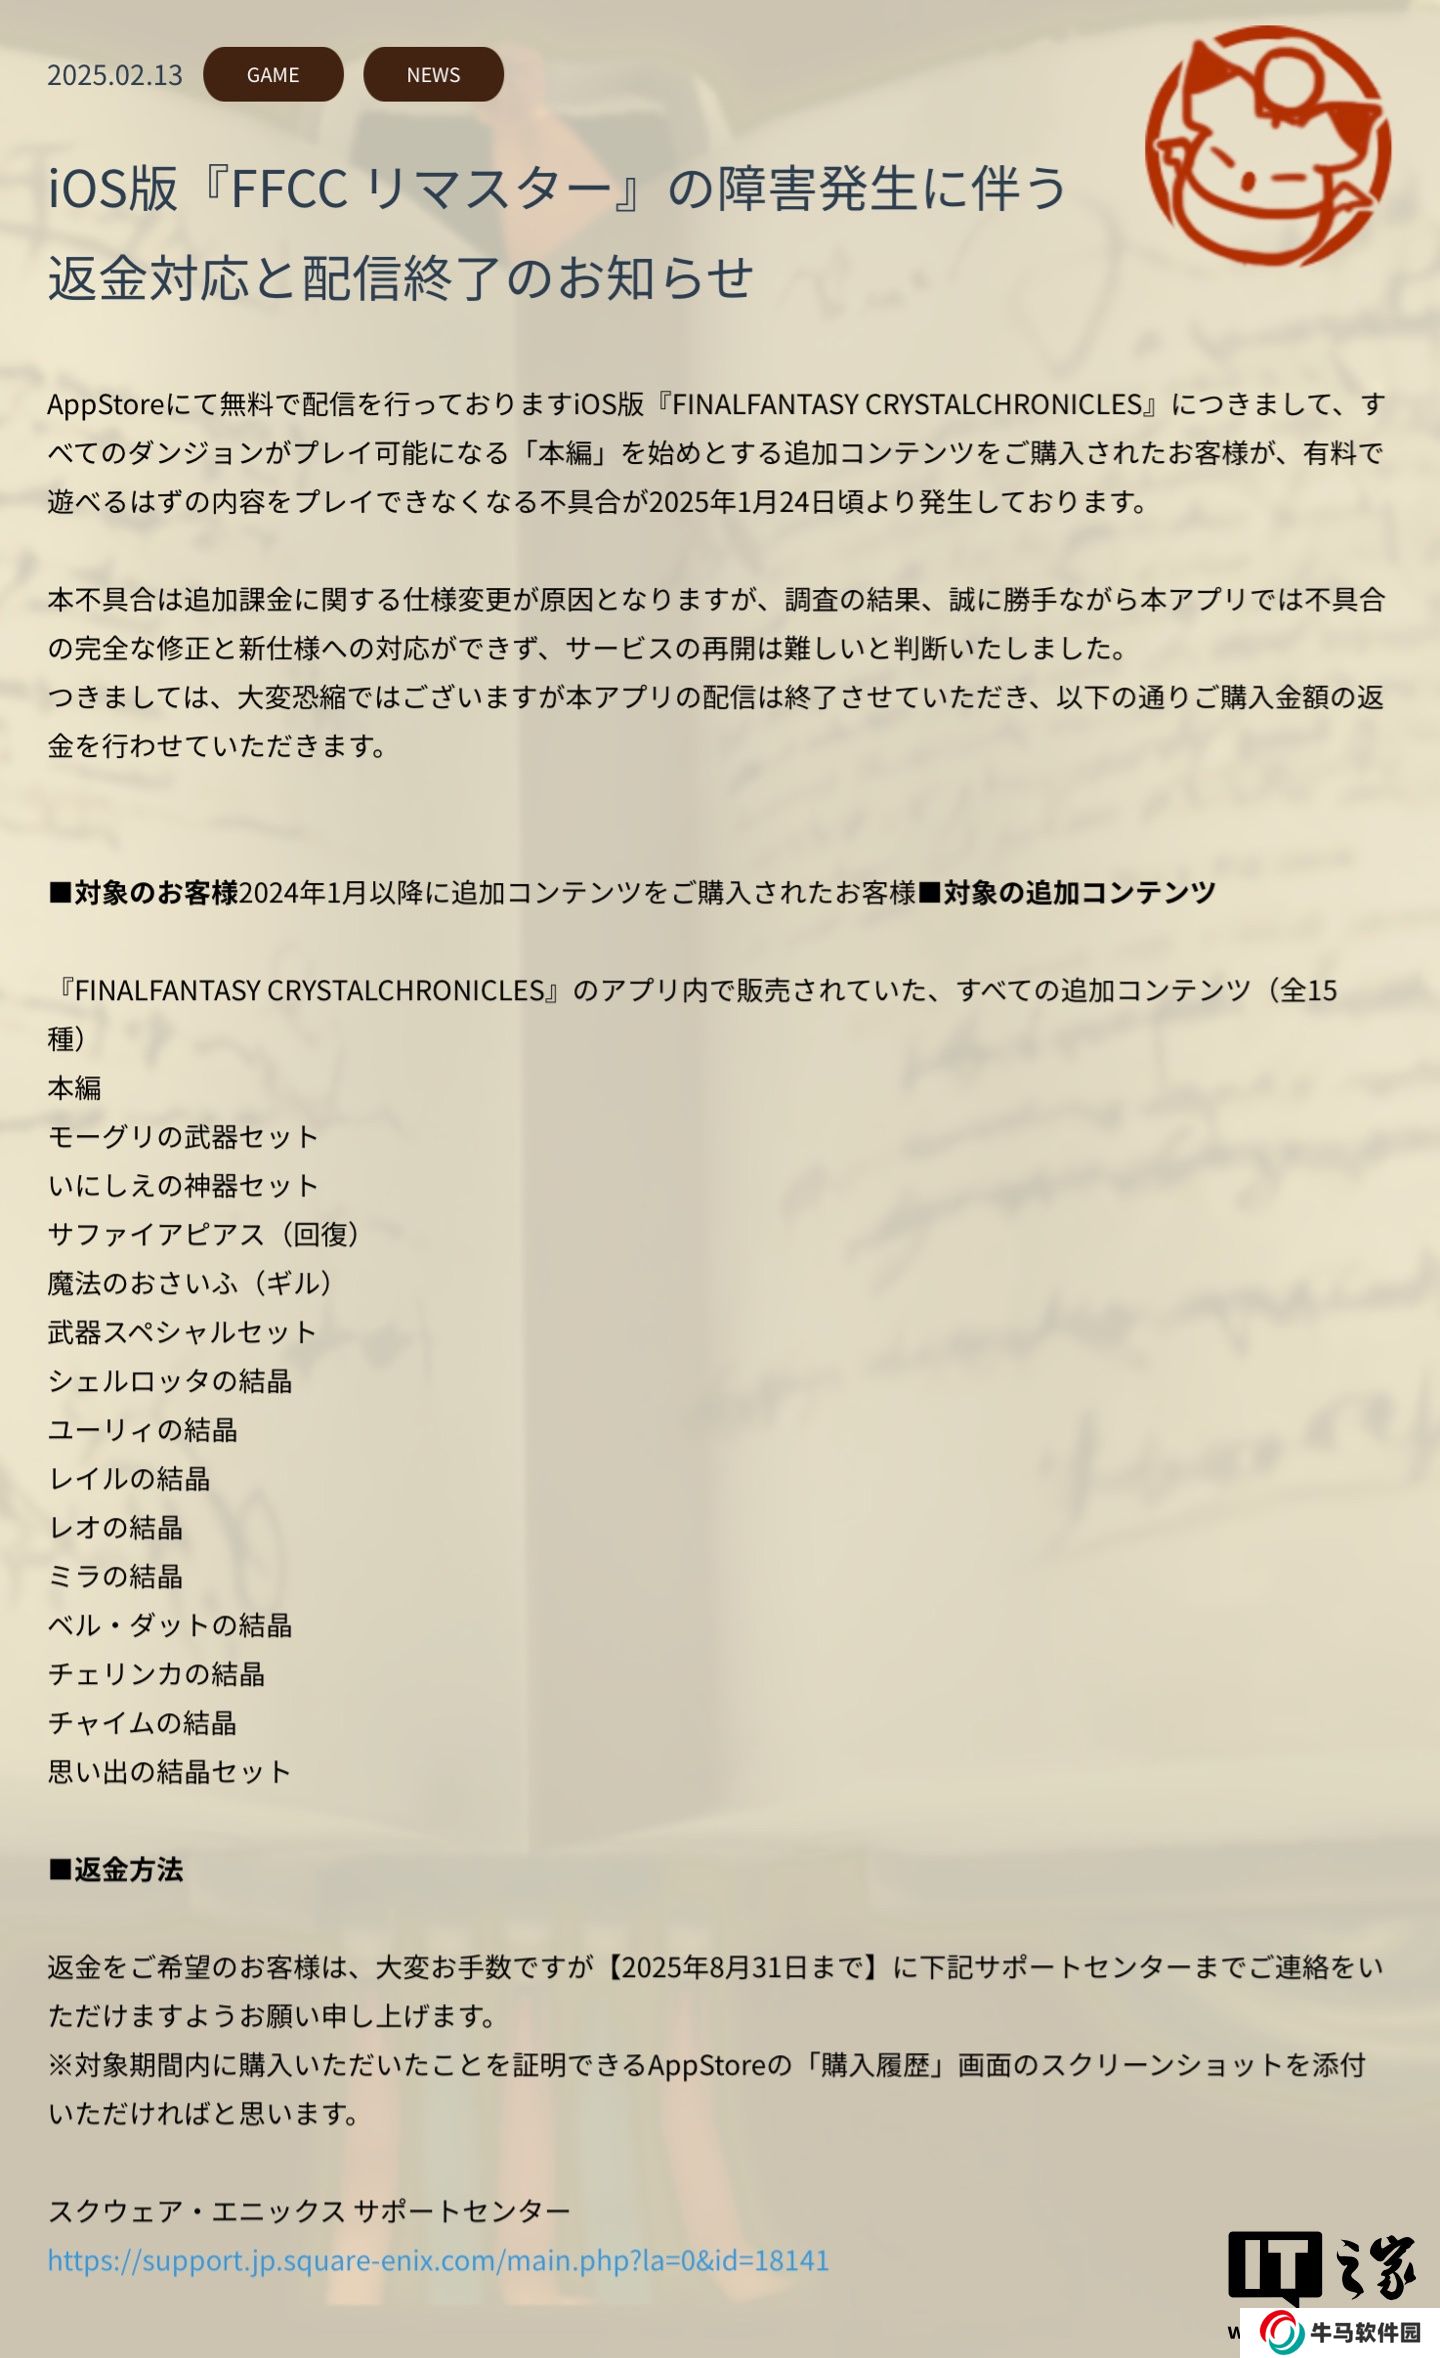 2025.02.13 GAME NEWS
iOS版『FFCC リマスター』の障害発生に伴う
返金対応と配信終了のお知らせ
AppStoreにて無料で配信を行っておりますiOS版『FINALFANTASY CRYSTALCHRONICLES』につきまして、す
べてのダンジョンがプレイ可能になる「本編」を始めとする追加コンテンツをご購入されたお客様が、有料で
遊べるはずの内容をプレイできなくなる不具合が2025年1月24日頃より発生しております。
本不具合は追加課金に関する仕様変更が原因となりますが、調査の結果、誠に勝手ながら本アプリでは不具合
の完全な修正と新仕様への対応ができず、サービスの再開は難しいと判断いたしました。
つきましては、大変恐縮ではございますが本アプリの配信は終了させていただき、以下の通りご購入金額の返
金を行わせていただきます。
■対象のお客様2024年1月以降に追加コンテンツをご購入されたお客様■対象の追加コンテンツ
『FINALFANTASY CRYSTALCHRONICLES』のアプリ内で販売されていた、すべての追加コンテンツ（全15
種）
本編
モーグリの武器セット
いにしえの神器セット
サファイアピアス（回復）
魔法のおさいふ（ギル）
武器スペシャルセット
シェルロッタの結晶
ユーリィの結晶
レイルの結晶
レオの結晶
ミラの結晶
ベル・ダットの結晶
チェリンカの結晶
チャイムの結晶
思い出の結晶セット
■返金方法
返金をご希望のお客様は、大変お手数ですが【2025年8月31日まで】に下記サポートセンターまでご連絡をい
ただけますようお願い申し上げます。
※対象期間内に購入いただいたことを証明できるAppStoreの「購入履歴」画面のスクリーンショットを添付
いただければと思います。
スクウェア・エニックス サポートセンター
https://support.jp.square-enix.com/main.php?la=0&id=18141
IT之家
牛马软件园